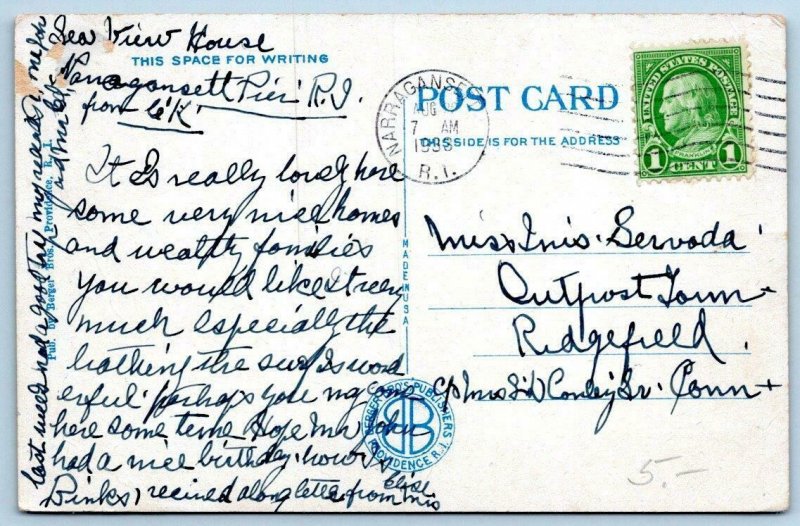 Sea View House
THIS SPACE FOR WRITING
Narragansett Pier R.I.
from
It is really lovely here
some very nice homes
and wealthy families
You would like it very
much especially the
bathing the surf is wond
erful perhaps you my come
here some time Hope Mr John
had a nice birthday. how is
Binks, I recieved a long letter from Mis
Elise
last week had a good
Pub. by Berger Bros., Providence, R. I.
MADE IN USA
BERGER BRO'S PUBLISHERS
BB
PROVIDENCE R.I.
POST CARD
THIS SIDE IS FOR THE ADDRESS
NARRAGANSETT
AUG
7 AM
R.I.
UNITED STATES POSTAGE
FRANKLIN
1 CENT 1
Miss Inis Servoda
Outpost Town
Ridgefield.
C/o Mrs Sid Conley Sr. Conn
5.-